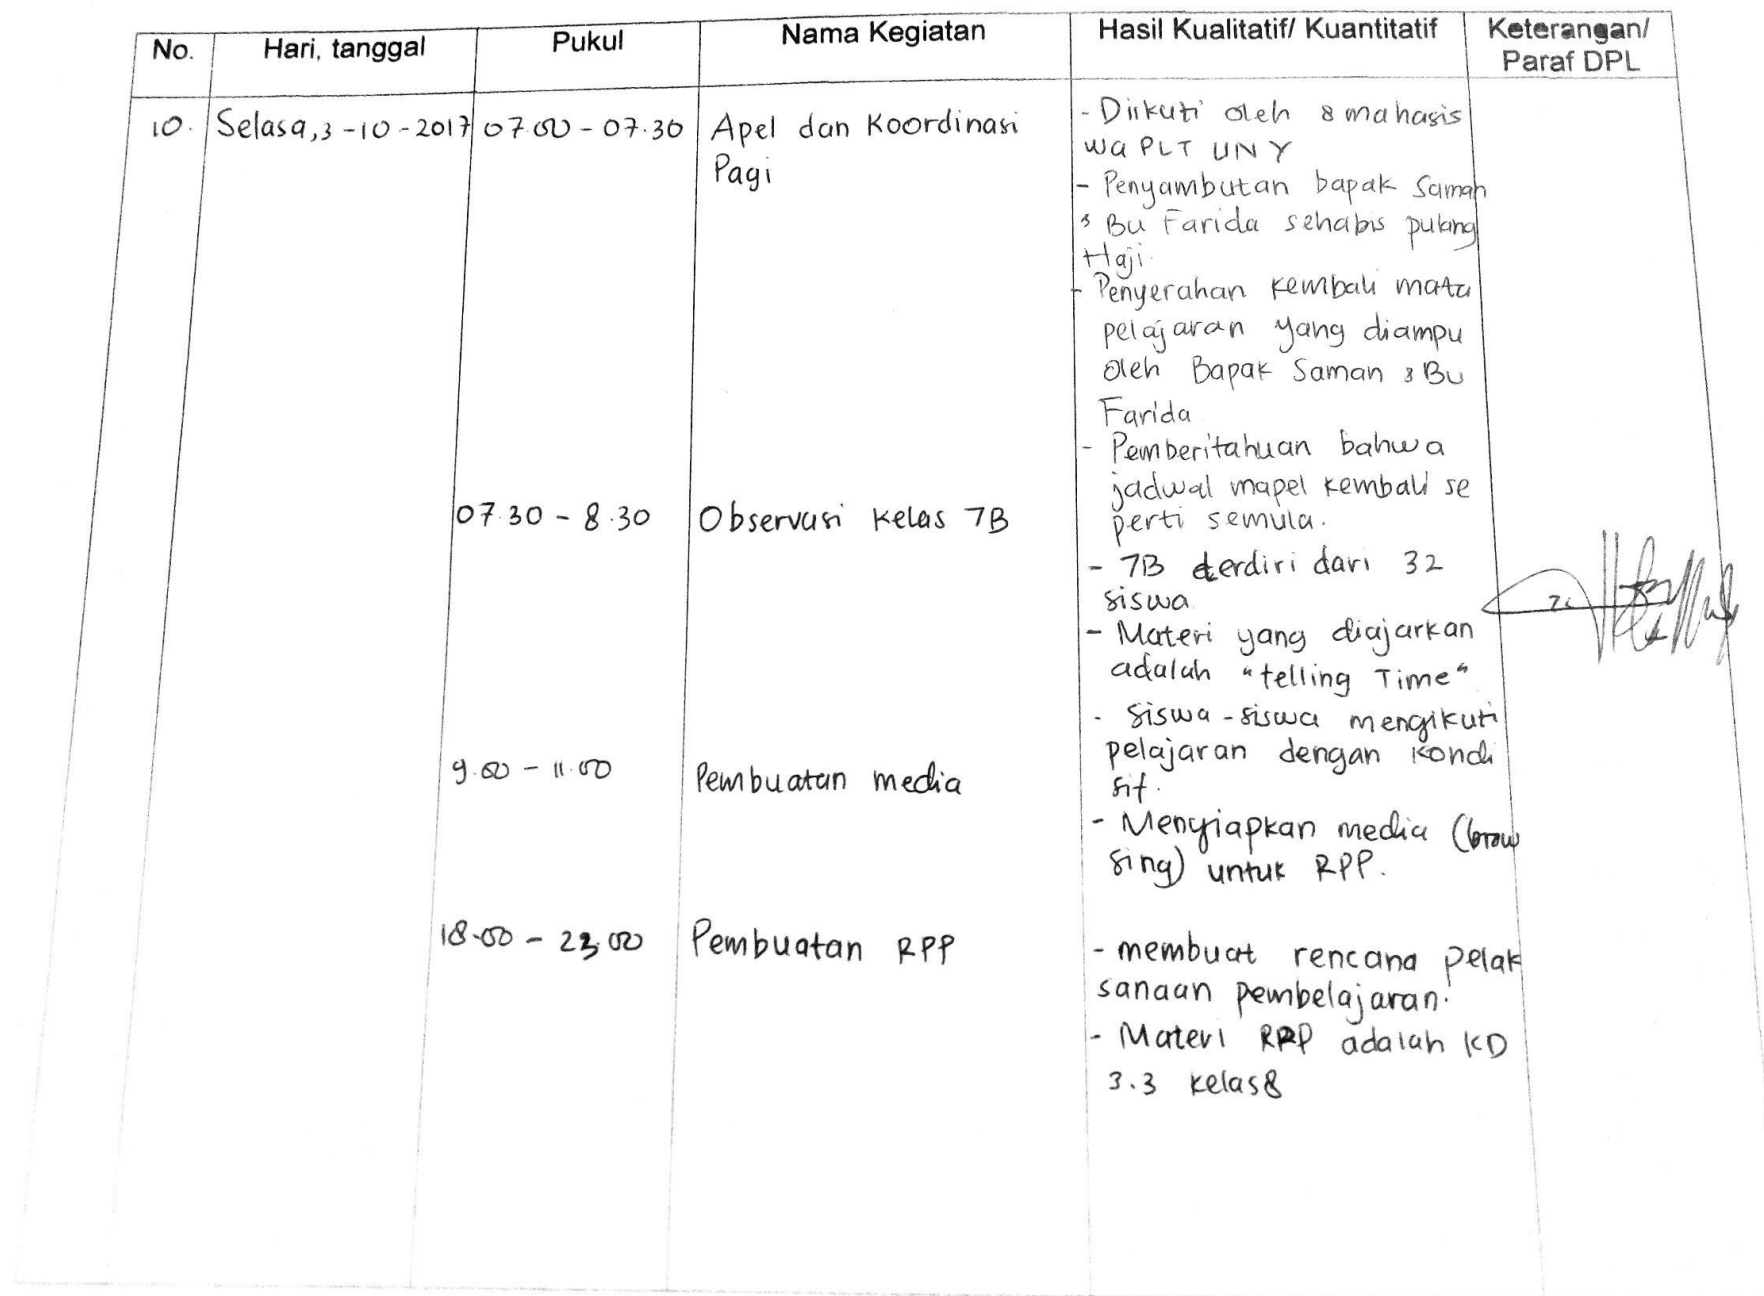 No. Hari, tanggal Pukul Nama Kegiatan Hasil Kualitatif/ Kuantitatif Keterangan/
Paraf DPL
10. Selasa, 3-10-2017 07.00 - 07.30 Apel dan Koordinasi
Pagi
- Diikuti oleh 8 mahasis
wa PLT UNY
- Penyambutan bapak Saman
& Bu Farida sehabis pulang
Haji.
- Penyerahan kembali mata
pelajaran yang diampu
oleh Bapak Saman & Bu
Farida
- Pemberitahuan bahwa
jadwal mapel kembali se
perti semula.
07.30 - 8.30 Observasi kelas 7B
- 7B terdiri dari 32
siswa
- Materi yang diajarkan
adalah "telling Time"
- Siswa-siswa mengikuti
pelajaran dengan kondi
sif.
9.00 - 11.00 Pembuatan media
- Menyiapkan media (brow
sing) untuk RPP.
18.00 - 23.00 Pembuatan RPP
- membuat rencana pelak
sanaan pembelajaran.
- Materi RPP adalah KD
3.3 kelas 8